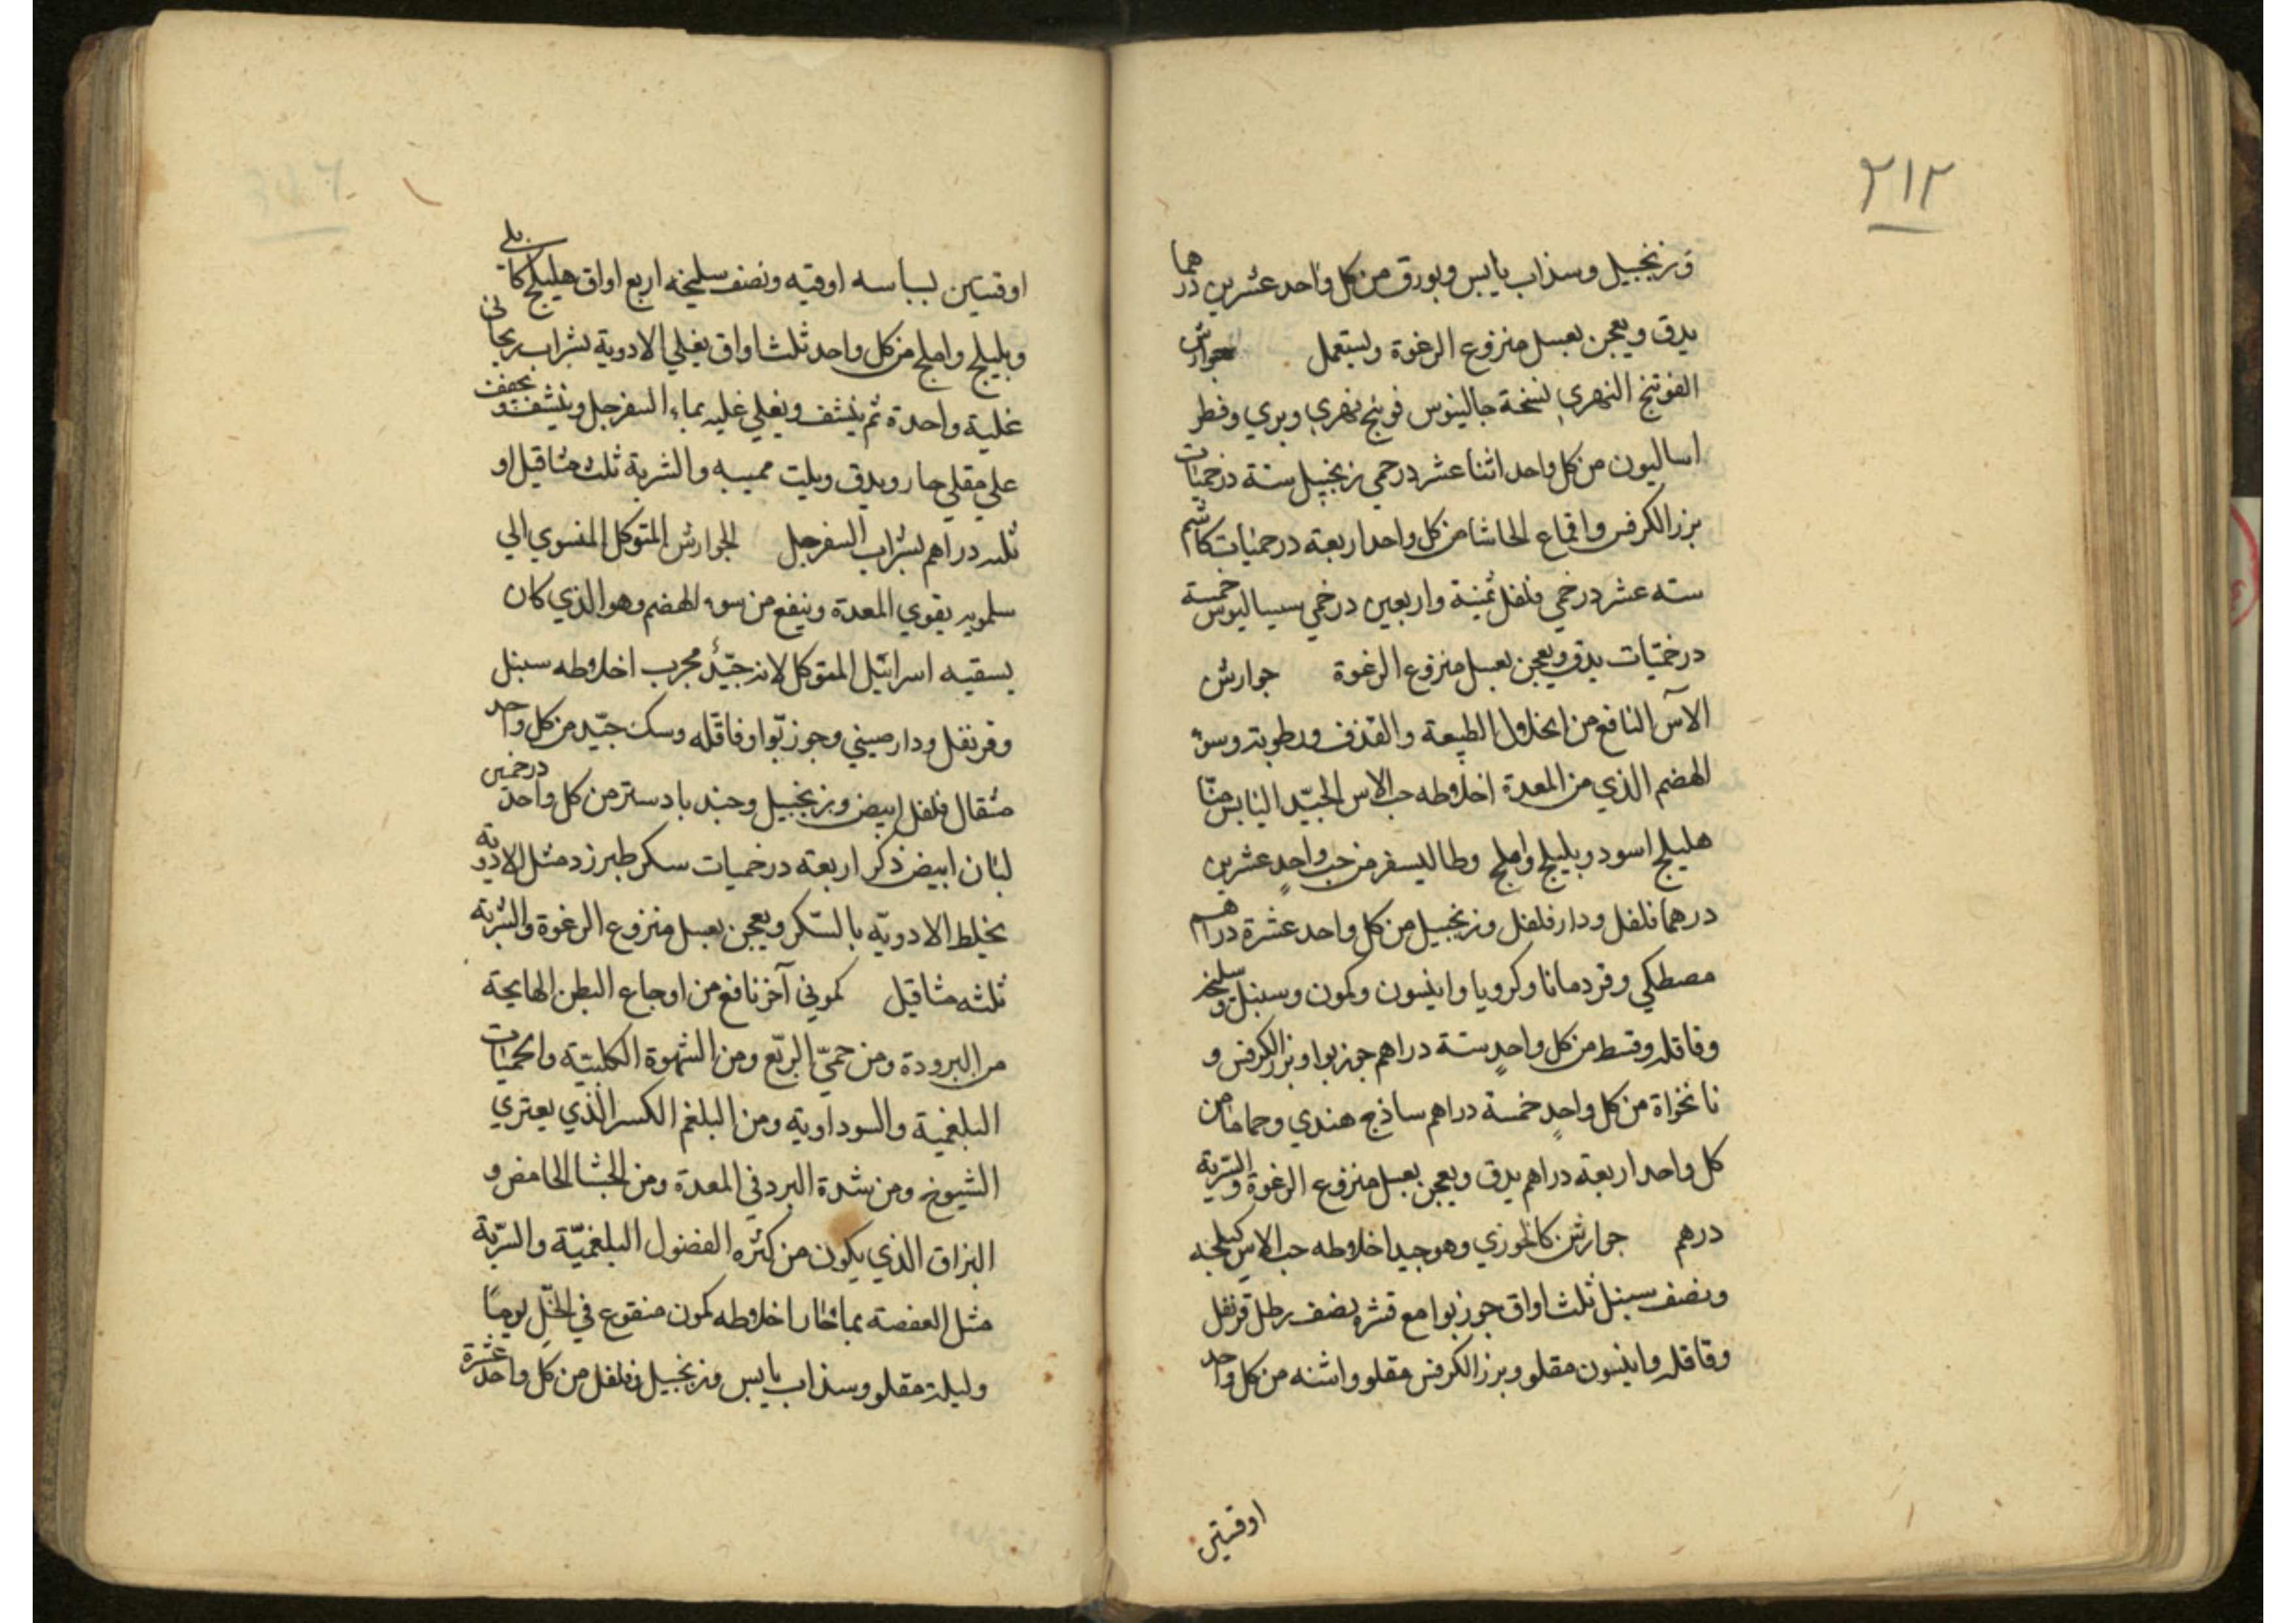 ٢١٢
وزنجبيل وسذاب يابس وبورق من كل واحد عشرين درهما
يدق ويعجن بعسل منزوع الرغوة ويستعمل جوارش
الفوتنج النهري نسخة جالينوس فوتنج نهري وبري وفطر
اساليون من كل واحد اثنا عشر درخمي زنجبيل ستة درخميات
بزر الكرفس واقماع الحاشا من كل واحد اربعة درخميات كاشم
سته عشر درخمي فلفل ثمنية واربعين درخمي سيساليوس خمسة
درخميّات يدق ويعجن بعسل منزوع الرغوة جوارش
الآس النافع من انحلال الطبيعة والقذف ورطوبته وسؤ
الهضم الذي من المعدة اخلاطه حب الاس الجيّد اليابس منّا
هليلج اسود وبليلج واملج وطاليسفر من حب واحدٍ عشرين
درهما فلفل ودار فلفل وزنجبيل من كل واحد عشرة دراهم
مصطكي وقردمانا وكرويا وانيسون وكمون وسنبل وسليخه
وقاقله وقسط من كل واحدٍ ستة دراهم جوز بوا وبزر الكرفس و
نانخواة من كل واحدٍ خمسة دراهم ساذج هندي وحماما من
كل واحد اربعة دراهم يدق ويعجن بعسل منزوع الرغوة والشربة
درهم جوارش كالخوزي وهو جيد اخلاطه حب الاس كيلجه
ونصف سنبل ثلث اواق جوز بوا مع قشره نصف رطل قرنفل
وقاقله وانيسون مقلو وبزر الكرفس مقلو واشنه من كل واحد
اوقيتين
اوقيتين بسباسه اوقيه ونصف سليخه اربع اواق هليلج كابلي
وبليلج واملج من كل واحد ثلث اواق يغلي الادوية بشراب ريحاني
غلية واحدة ثم ينشف ويغلي غليه بماء السفرجل وينشف ويجفف
علي مقلي حار ويدق ويلت بميبه والشربة ثلث مثاقيل او
ثلثه دراهم بشراب السفرجل الجوارش المتوكل المنسوي الي
سلمويه يقوي المعدة وينفع من سوء الهضم وهو الذي كان
يسقيه اسرائيل المتوكل لانه جيّد مجرب اخلاطه سنبل
وقرنفل ودارصيني وجوز بّوا وقاقله وسك جيّد من كل واحد
مثقال فلفل ابيض وزنجبيل وجندبادستر من كل واحد درخمين
لبان ابيض ذكر اربعة درخميات سكر طبرزد مثل الادويه
يخلط الادويّه بالسّكر ويعجن بعسل منزوع الرغوة والشربة
ثلثه مثاقيل كموني آخر نافع من اوجاع البطن الهايجة
من البرودة ومن حميّ الربّع ومن الشهوة الكلبيّة والحميات
البلغمية والسوداويه ومن البلغم الكسر الذي يعتري
الشيوخ ومن شدة البرد في المعدة ومن الجشا الحامض و
البزاق الذي يكون من كثره الفضول البلغميّة والشربة
مثل العفصة بماء حار اخلاطه كمون منقوع في الخلّ يومًا
وليلة مقلو وسذاب يابس وزنجبيل وفلفل من كل واحد عشرة